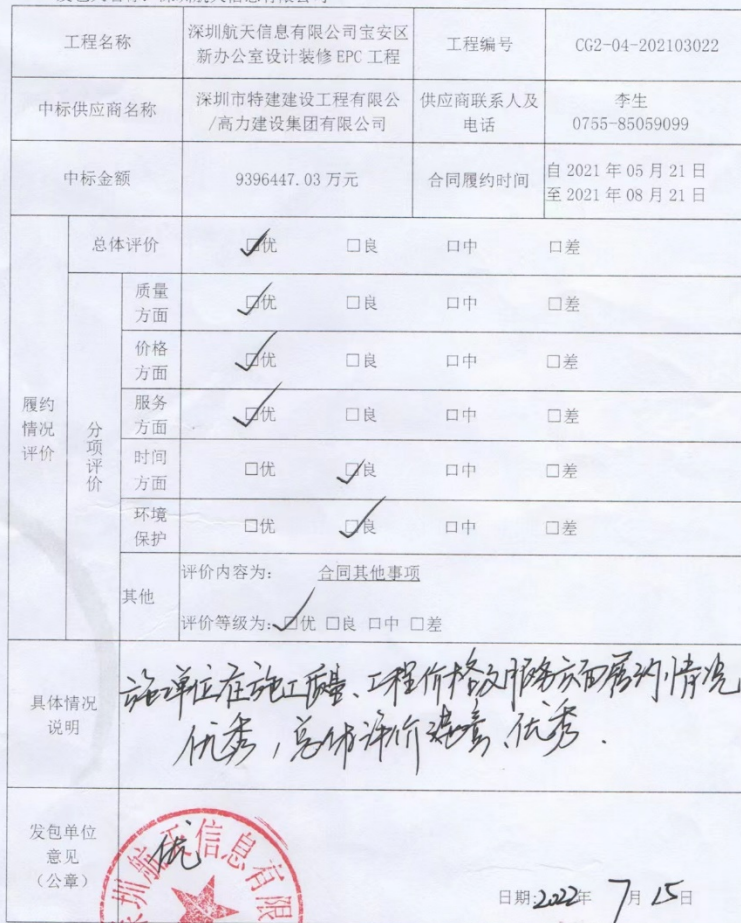 工程名称
深圳航天信息有限公司宝安区
新办公室设计装修 EPC 工程
工程编号
CG2-04-202103022
中标供应商名称
深圳市特建建设工程有限公
/高力建设集团有限公司
供应商联系人及
电话
李生
0755-85059099
中标金额
9396447.03 万元
合同履约时间
自 2021 年 05 月 21 日
至 2021 年 08 月 21 日
履约
情况
评价
总体评价
☑优 □良 □中 □差
分
项
评
价
质量
方面
☑优 □良 □中 □差
价格
方面
☑优 □良 □中 □差
服务
方面
☑优 □良 □中 □差
时间
方面
□优 ☑良 □中 □差
环境
保护
□优 ☑良 □中 □差
其他
评价内容为: 合同其他事项
评价等级为: ☑优 □良 □中 □差
具体情况
说明
单位在施工质量、工程价格及服务方面履约情况
优秀, 总体评价 优秀.
发包单位
意见
(公章)
优
圳航天信息有限
日期:2022年 7月 15日